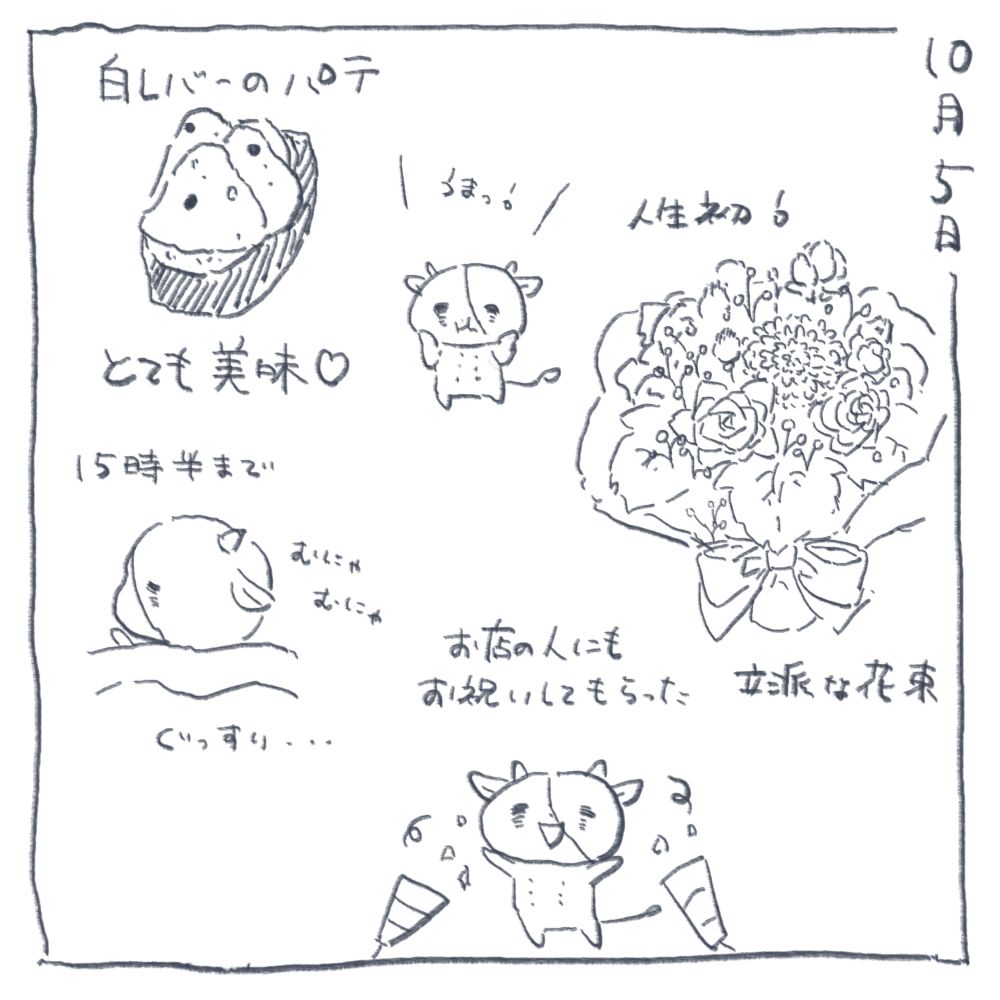 10月5日
白レバーのパテ
とても美味♡
うまっ!
人生初!
立派な花束
15時半まで
むにゃ
むにゃ
ぐっすり...
お店の人にも
お祝いしてもらった